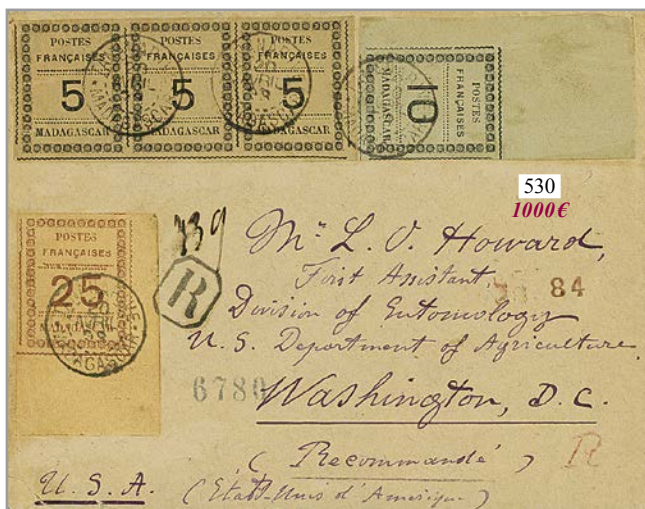 POSTES
FRANÇAISES
5
MADAGASCAR
POSTES
FRANÇAISES
5
MADAGASCAR
POSTES
FRANÇAISES
5
MADAGASCAR
POSTES
FRANÇAISES
10
MADAGASCAR
530
1000€
POSTES
FRANÇAISES
25
MADAGASCAR
739
R
Mr. L. O. Howard,
First Assistant,
84
Division of Entomology
U. S. Department of Agriculture
6780
Washington, D. C.
(Recommandé)
R
U. S. A.
(États-Unis d'Amérique)